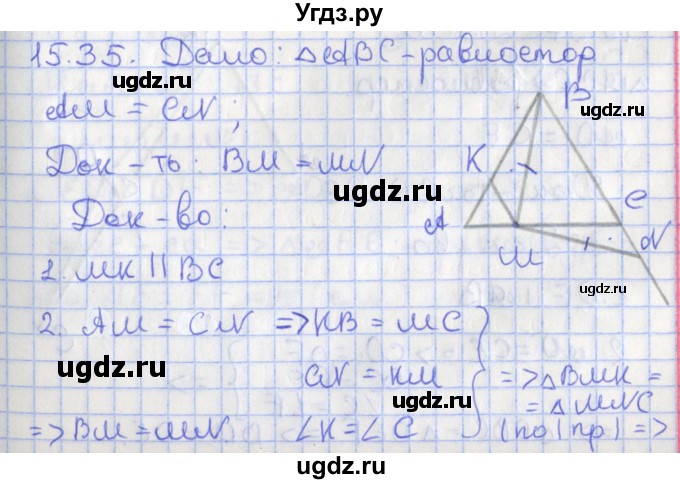 Угдз.ру
15.35. Дано: △ABC-равностор
AM = CN;
Док-ть: BM = MN
Док-во:
1. MK || BC
2. AM = CN => KB = MC
CN = KM
=> △BMK =
= △MNC
=> BM = MN.
∠K = ∠C
(по I пр) =>
B
K
A
M
C
N
uдgz.ru
ugdz.ru
ugdz.ru
ugdz.ru
ugdz.ru
ugdz.ru
ugdz.ru
ugdz.ru
ugdz.ru